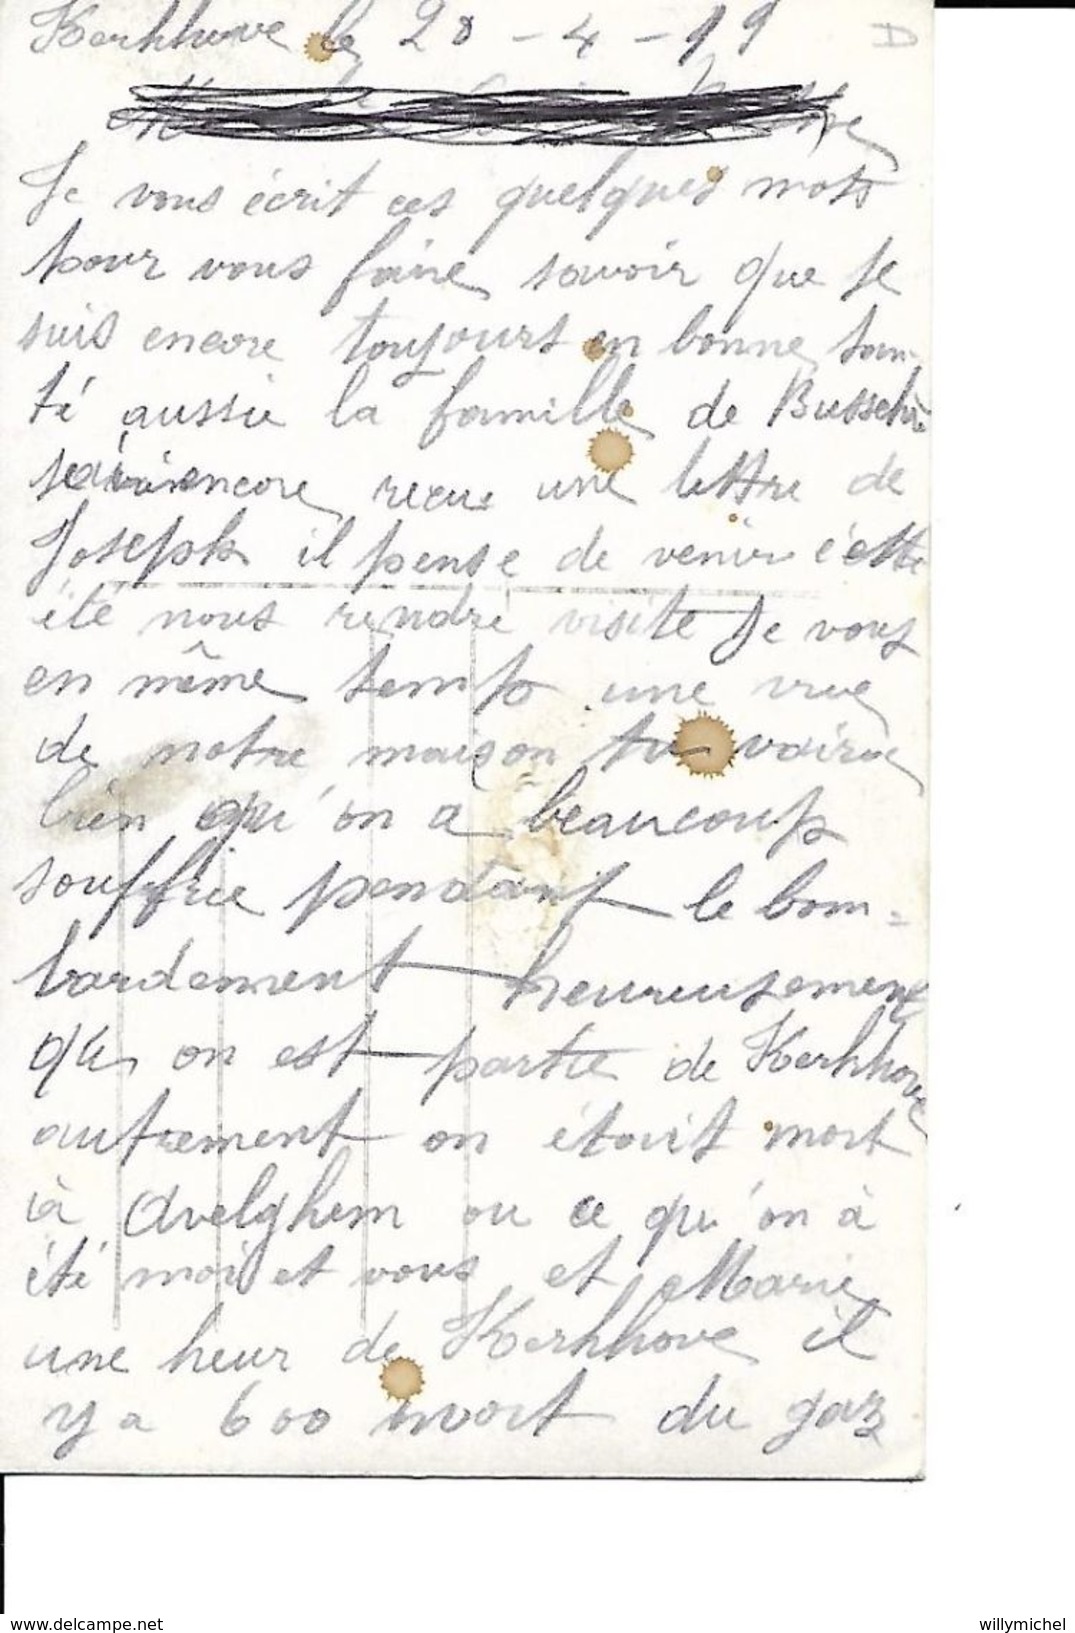 Kerkhove le 28 - 4 - 19
Je vous écrit ces quelques mots
pour vous faire savoir que Je
suis encore toujours en bonne san-
té aussie la famille de
encore reçue une lettre de
Joseph il pense de venir cette
été nous rendre visite Je vous
en même temp une vue
de notre maison tu voira
bien qu'on a beaucoup
souffrie pendant le bom-
bardement heureusement
que on est partie de Kerkhove
autrement on étoit mort
à Avelghem ou ce qu'on à
été moi et vous et Marie
une heur de Kerkhove il
y a 600 mort du gaz
delcampe.net
willymichel